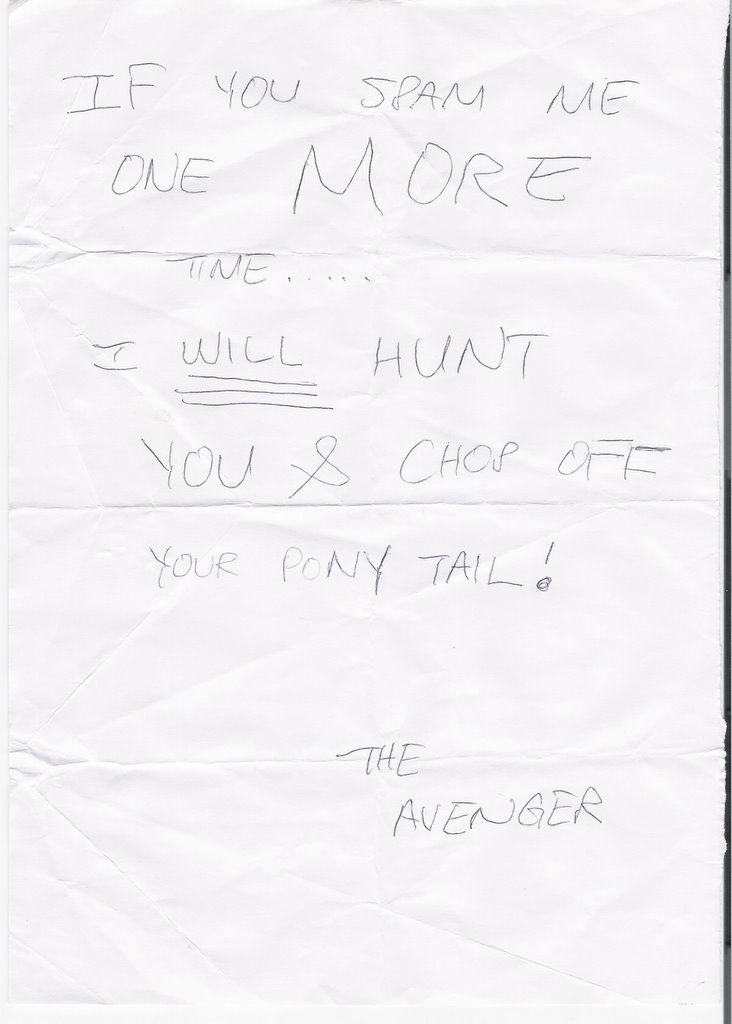 IF YOU SPAM ME
ONE MORE
TIME.....
I WILL HUNT
YOU & CHOP OFF
YOUR PONY TAIL!
THE
AVENGER